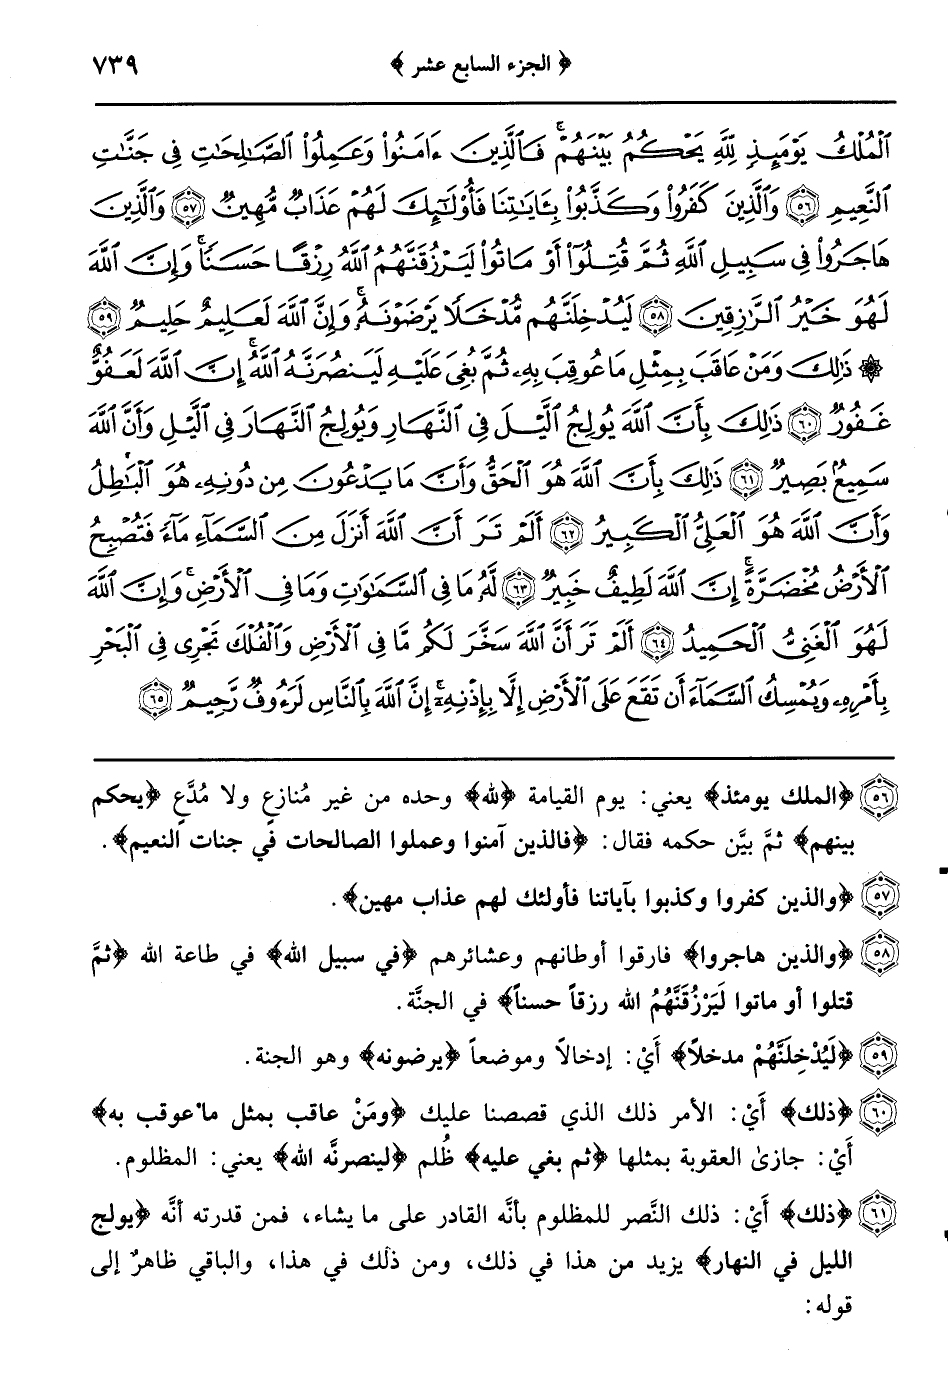 ﴿ الجزء السابع عشر ﴾ ٧٣٩
ٱلْمُلْكُ يَوْمَئِذٍ لِّلَّهِ يَحْكُمُ بَيْنَهُمْ ۚ فَٱلَّذِينَ ءَامَنُوا۟ وَعَمِلُوا۟ ٱلصَّـٰلِحَـٰتِ فِى جَنَّـٰتِ
ٱلنَّعِيمِ ٥٦ وَٱلَّذِينَ كَفَرُوا۟ وَكَذَّبُوا۟ بِـَٔايَـٰتِنَا فَأُو۟لَـٰٓئِكَ لَهُمْ عَذَابٌ مُّهِينٌ ٥٧ وَٱلَّذِينَ
هَاجَرُوا۟ فِى سَبِيلِ ٱللَّهِ ثُمَّ قُتِلُوٓا۟ أَوْ مَاتُوا۟ لَيَرْزُقَنَّهُمُ ٱللَّهُ رِزْقًا حَسَنًا ۚ وَإِنَّ ٱللَّهَ
لَهُوَ خَيْرُ ٱلرَّٰزِقِينَ ٥٨ لَيُدْخِلَنَّهُم مُّدْخَلًا يَرْضَوْنَهُۥ ۗ وَإِنَّ ٱللَّهَ لَعَلِيمٌ حَلِيمٌ ٥٩
۞ ذَٰلِكَ وَمَنْ عَاقَبَ بِمِثْلِ مَا عُوقِبَ بِهِۦ ثُمَّ بُغِىَ عَلَيْهِ لَيَنصُرَنَّهُ ٱللَّهُ ۗ إِنَّ ٱللَّهَ لَعَفُوٌّ
غَفُورٌ ٦٠ ذَٰلِكَ بِأَنَّ ٱللَّهَ يُولِجُ ٱلَّيْلَ فِى ٱلنَّهَارِ وَيُولِجُ ٱلنَّهَارَ فِى ٱلَّيْلِ وَأَنَّ ٱللَّهَ
سَمِيعٌۢ بَصِيرٌ ٦١ ذَٰلِكَ بِأَنَّ ٱللَّهَ هُوَ ٱلْحَقُّ وَأَنَّ مَا يَدْعُونَ مِن دُونِهِۦ هُوَ ٱلْبَـٰطِلُ
وَأَنَّ ٱللَّهَ هُوَ ٱلْعَلِىُّ ٱلْكَبِيرُ ٦٢ أَلَمْ تَرَ أَنَّ ٱللَّهَ أَنزَلَ مِنَ ٱلسَّمَآءِ مَآءً فَتُصْبِحُ
ٱلْأَرْضُ مُخْضَرَّةً ۗ إِنَّ ٱللَّهَ لَطِيفٌ خَبِيرٌ ٦٣ لَّهُۥ مَا فِى ٱلسَّمَـٰوَٰتِ وَمَا فِى ٱلْأَرْضِ ۗ وَإِنَّ ٱللَّهَ
لَهُوَ ٱلْغَنِىُّ ٱلْحَمِيدُ ٦٤ أَلَمْ تَرَ أَنَّ ٱللَّهَ سَخَّرَ لَكُم مَّا فِى ٱلْأَرْضِ وَٱلْفُلْكَ تَجْرِى فِى ٱلْبَحْرِ
بِأَمْرِهِۦ وَيُمْسِكُ ٱلسَّمَآءَ أَن تَقَعَ عَلَى ٱلْأَرْضِ إِلَّا بِإِذْنِهِۦٓ ۗ إِنَّ ٱللَّهَ بِٱلنَّاسِ لَرَءُوفٌ رَّحِيمٌ ٦٥
٥٦ ﴿الملك يومئذ﴾ يعني: يوم القيامة ﴿لله﴾ وحده من غير مُنازعٍ ولا مُدَّعٍ ﴿يحكم
بينهم﴾ ثمَّ بيَّن حكمه فقال: ﴿فالذين آمنوا وعملوا الصالحات في جنات النعيم﴾.
٥٧ ﴿والذين كفروا وكذبوا بآياتنا فأولئك لهم عذاب مهين﴾.
٥٨ ﴿والذين هاجروا﴾ فارقوا أوطانهم وعشائرهم ﴿في سبيل الله﴾ في طاعة الله ﴿ثمَّ
قتلوا أو ماتوا لَيَرْزُقَنَّهُمُ الله رزقاً حسناً﴾ في الجنَّة.
٥٩ ﴿لَيُدْخِلَنَّهُمْ مدخلاً﴾ أَيْ: إدخالاً وموضعاً ﴿يرضونه﴾ وهو الجنة.
٦٠ ﴿ذلك﴾ أَيْ: الأمر ذلك الذي قصصنا عليك ﴿ومَنْ عاقب بمثل ما عوقب به﴾
أَيْ: جازىٰ العقوبة بمثلها ﴿ثم بغي عليه﴾ ظُلم ﴿لينصرنَّه الله﴾ يعني: المظلوم.
٦١ ﴿ذلك﴾ أَيْ: ذلك النَّصر للمظلوم بأنَّه القادر على ما يشاء، فمن قدرته أنَّه ﴿يولج
الليل في النهار﴾ يزيد من هذا في ذلك، ومن ذلك في هذا، والباقي ظاهرٌ إلى
قوله: